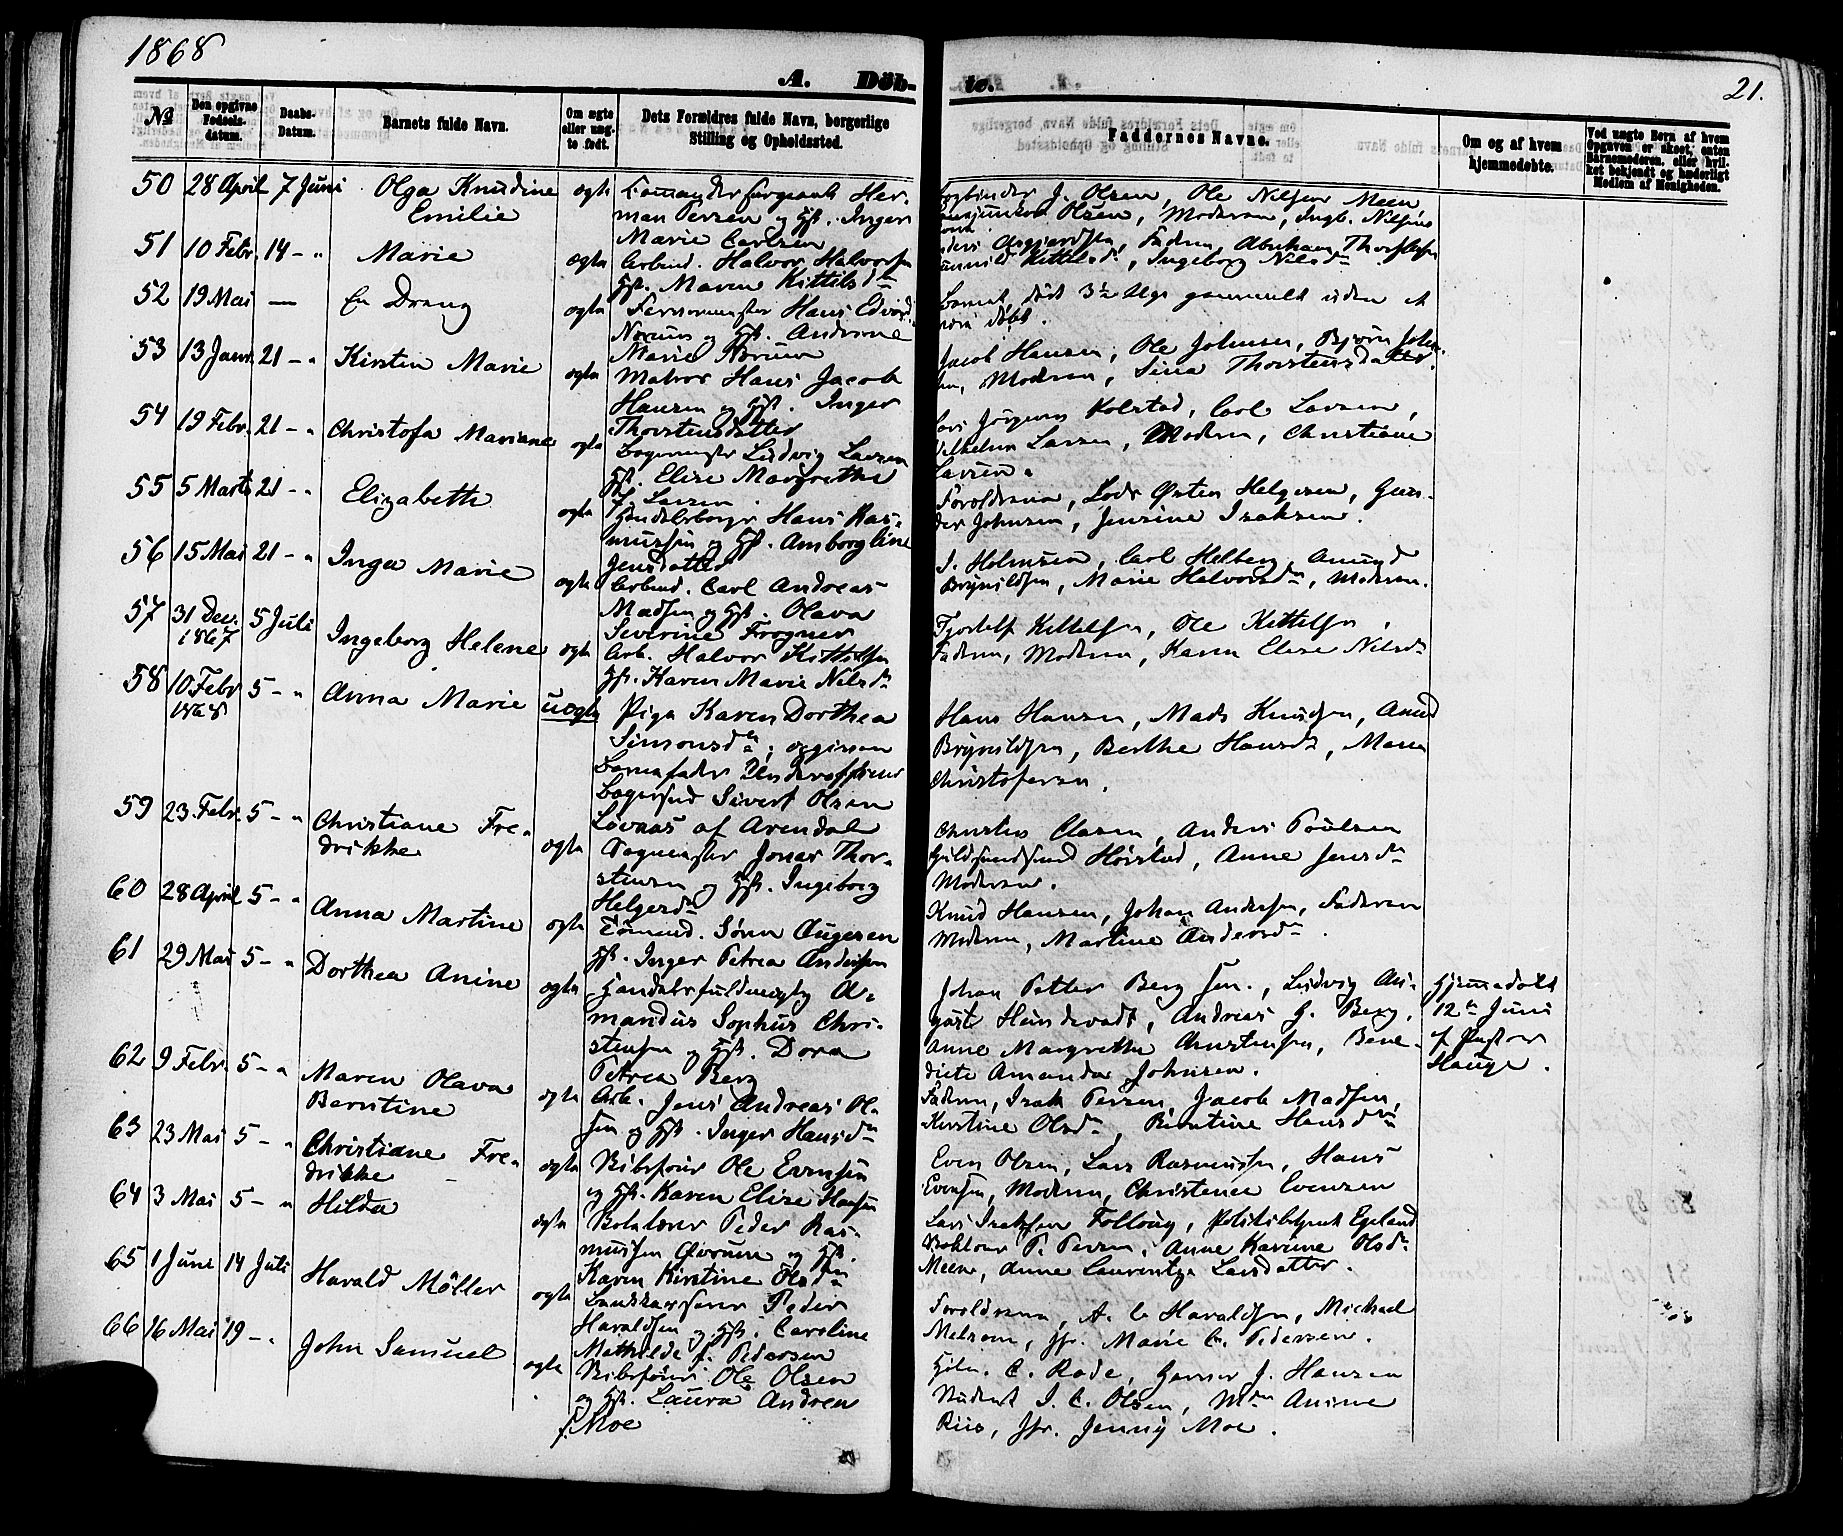 1868
21.
A. Döb-
te.
No
Den opgivne Fødsels-datum.
Daabs-Datum.
Barnets fulde Navn.
Om ægte eller uæg-te født.
Dets Forældres fulde Navn, borgerlige Stilling og Opholdssted.
Faddernes Navne.
Om og af hvem hjemmedøbte.
Ved uægte Børn af hvem Opgaven er skeet, enten Barnemoderen, eller hvil-ket bekjendt og hæderligt Medlem af Menigheden.
50 28 April 7 Juni Olga Knudine
Emilie
ægte
Her-
man Persen og Hst. Inger
Marie Carlsen
J. Olsen, Ole Nilsen Meen
Olsen, Moderen, Ingb. Nilsens
51 10 Febr. 14 - " Marie
ægte
Arbmd. Halvor Halvorsen
Hst. Maren Kittilsdr
Fadren, Abraham Thorsten
Kittilsdr, Ingeborg Nilsdr
52 19 Mai — En Dreng
ægte
Hans Edvard
Norum og Hst. Andrine
Marie Norum
Barnet født 3½ Uge gammelt uden at
døbt.
53 13 Janr. 21 - " Kirsten Marie
ægte
Matros Hans Jacob
Hansen og Hst. Inger
Thorstensdatter
Jacob Hansen, Ole Johnsen, Bjørn John-
sen, Moderen, Sina Thorstensdatter.
54 19 Febr. 21 - " Christofa Mariane
ægte
Bagermester Ludvig Larsen
Hst. Elise Margrethe
f. Larsen.
Jørgen Kolstad, Carl Larsen,
Vilhelm Larsen, Moderen, Christiane
Larsen.
55 5 Marts 21 - " Elizabeth
ægte
Handelsborgr Hans Ras-
mussen og Hst. Amborgline
Jensdatter
Forældrene, Lods Østen Helgesen, Gun-
der Johnsen, Jensine Isaksen.
56 15 Mai 21 - " Inga Marie
ægte
Arbmd. Carl Andreas
Madsen og Hst. Olava
Severine Frogner
J. Holmsen, Carl Helberg, Amund
Brynildsen, Marie Halvorsdr, Moderen.
57 31 Dec. 1867 5 Juli Ingeborg Helene
ægte
Arb. Halvor Kittilsen
Hst. Karen Marie Nilsdr
Kittelsen, Ole Kittelsen,
Fadren, Moderen, Karen Elise Nilsdr
58 10 Febr 1868 5 - " Anna Marie
uægte
Pige Karen Dorthea
Simonsdr; opgiven
Barnefader Underofficeer
Bagersvd Sivert Olsen
Løvaas af Arendal
Hans Hansen, Mads Knudsen, Amd
Brynildsen, Berthe Hansdr, Maren
Christofersen.
59 23 Febr. 5 - " Christiane Fre-
drikke
ægte
Jonas Thor-
stensen og Hst. Ingeborg
Helgesdr
Clasen, Anders Poulsen
Høistad, Anne Jensdr
Moderen.
60 28 April 5 - " Anna Martine
ægte
Tømmd. Søren Augesen
Hst. Inger Petrea Andersen
Knud Hansen, Johan Andersen, Faderen
Moderen, Martine Andersdr.
61 29 Mai 5 - " Dorthea Anine
ægte
Handelsfuldmægtig A-
mandus Sophus Chri-
stensen og Hst. Dora
Petrea Berg
Johan Petter Berg sen., Ludvig Au-
gust Hundevadt, Andreas H. Berg,
Anne Margrethe Christensen, Bene-
dicte Amanda Johnsen.
Hjemmedøbt
12te Juni
af Pastor
Hauge.
62 9 Febr. 5 - " Maren Olava
Berntine
ægte
Arb. Jens Andreas Ol-
sen og Hst. Inger Hansdr
Fadren, Isak Persen, Jacob Madsen,
Kirstine Olsdr, Berntine Hansdr
63 23 Mai 5 - " Christiane Fre-
drikke
ægte
Skibsfører Ole Evensen
og Hst. Karen Elise Hansen
Even Olsen, Lars Rasmussen, Hans
Evensen, Moderen, Christence Evensen
64 3 Mai 5 - " Hilda
ægte
Peder Ras-
mussen Øvrum og Hst.
Karen Kirstine Olsdr
Lars Isaksen Follaug, Politibetjent Egeland
P. Persen, Anne Karine Olsdr
Meen, Anne Laurentze Larsdatter.
65 1 Juni 14 Juli Harald Möller
ægte
Peder
Haraldsen og Hst. Caroline
Mathilde f. Pedersen
Forældrene, A. C. Haraldsen, Michael
Melsom, Jfr. Marie C. Pedersen.
66 16 Mai 19 - " John Samuel
ægte
Skibsfører Ole Olsen
og Hst. Laura Andrea
f. Moe
C. Rode, J. Hansen
Student J. C. Olsen, Mdm Anine
Riis, Jfr. Jenny Moe.